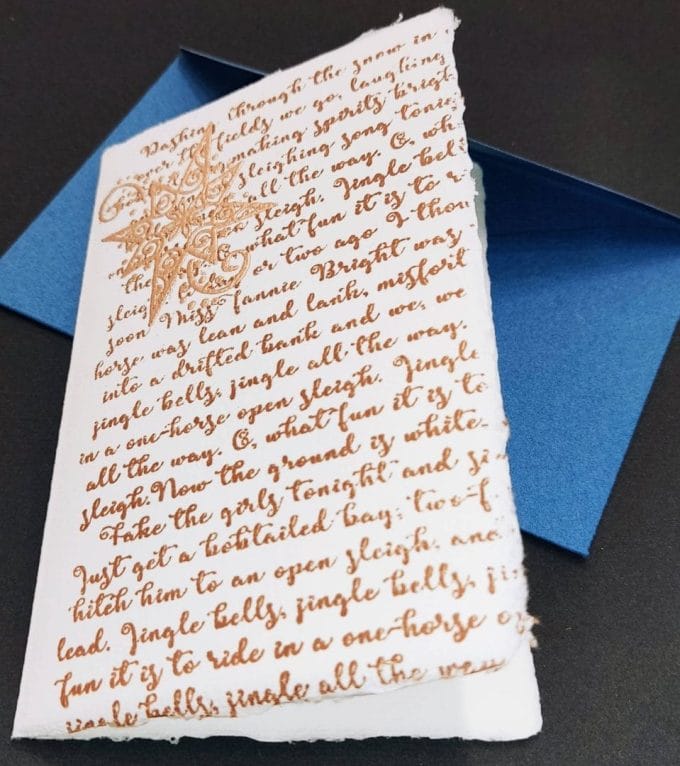 Dashing through the snow in
over the fields we go, laughing
making spirits brigh
sleighing song tonig
all the way. O, wh
sleigh. Jingle bel
what fun it is to r
the or two ago I thou
sleigh
soon Miss Fannie Bright was
horse was lean and lank, misfort
into a drifted bank and we, we
jingle bells, jingle all the way.
in a one-horse open sleigh. Jingle
all the way. O, what fun it is to
sleigh. Now the ground is white
Take the girls tonight and si
Just get a bobtailed bay; two-f
hitch him to an open sleigh, and
lead. Jingle bells, jingle bells, ji
fun it is to ride in a one-horse o
jingle bells, jingle all the way